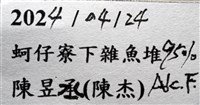 2024/04/24
蚵仔寮下雜魚堆95%
陳昱丞(陳杰) Adc.F.